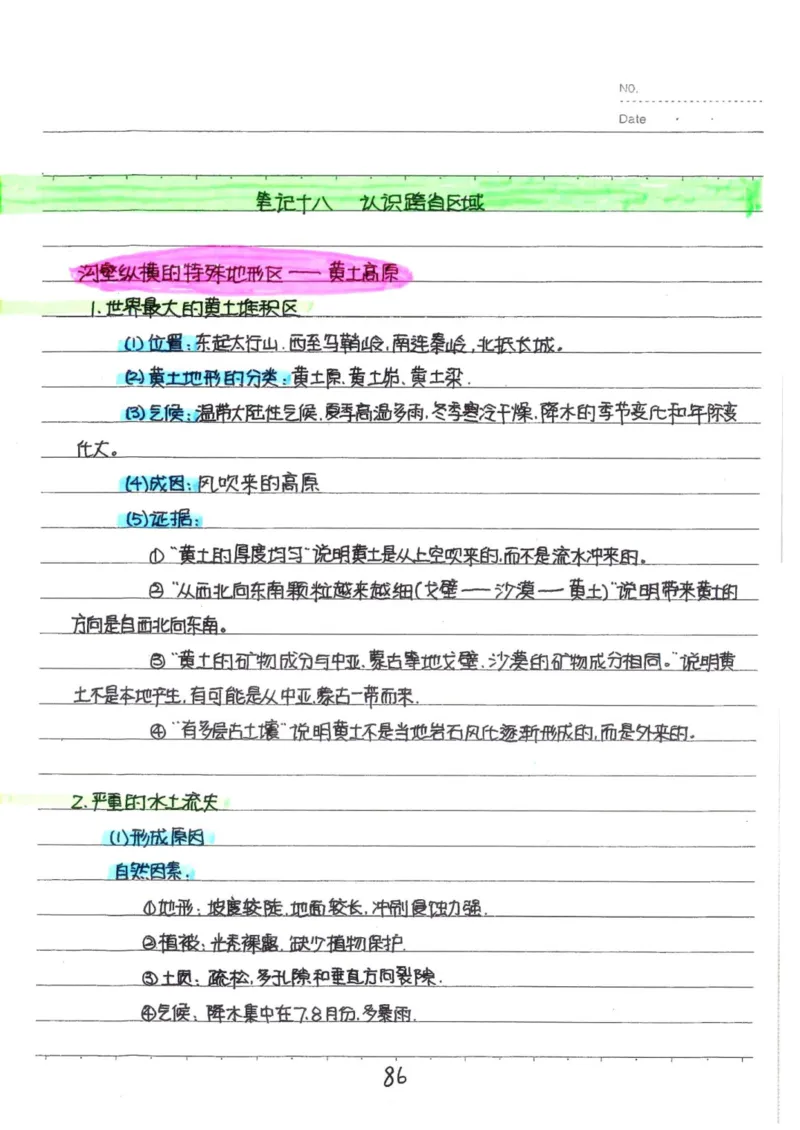 NO.
Date
笔记十八 认识跨省区域
沟壑纵横的特殊地形区——黄土高原
1.世界最大的黄土堆积区
(1)位置:东起太行山.西至乌鞘岭,南连秦岭,北抵长城。
(2)黄土地形的分类:黄土原、黄土峁、黄土梁.
(3)气候:温带大陆性气候.夏季高温多雨,冬季寒冷干燥,降水的季节变化和年际变
化大。
(4)成因:风吹来的高原
(5)证据:
①“黄土的厚度均匀”说明黄土是从上空吹来的,而不是流水冲来的。
②“从西北向东南颗粒越来越细(戈壁——沙漠——黄土)”说明带来黄土的
方向是自西北向东南。
③“黄土的矿物成分与中亚、蒙古等地戈壁、沙漠的矿物成分相同。”说明黄
土不是本地产生,有可能是从中亚、蒙古一带而来.
④“有多层古土壤”说明黄土不是当地岩石风化逐渐形成的,而是外来的。
2.严重的水土流失
(1)形成原因
自然因素.
①地形:坡度较陡,地面较长,冲刷侵蚀力强.
②植被:光秃裸露,缺少植物保护.
③土质:疏松,多孔隙和垂直方向裂隙.
④气候:降水集中在7.8月份,多暴雨.
86